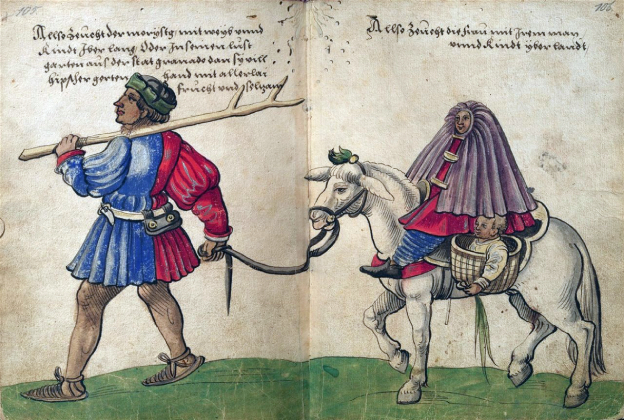 105
Allso zeucht der morysⷦg mit weyb vnnd
Kindt Jber lang Oder Jn seinen lust
garten aus der stat granade dan sy vill
hipscher gerten hand mit allerlai
frucht vnd selzam
106
Allso zeucht die frau mit Irem man
vnnd Kindt yber landt